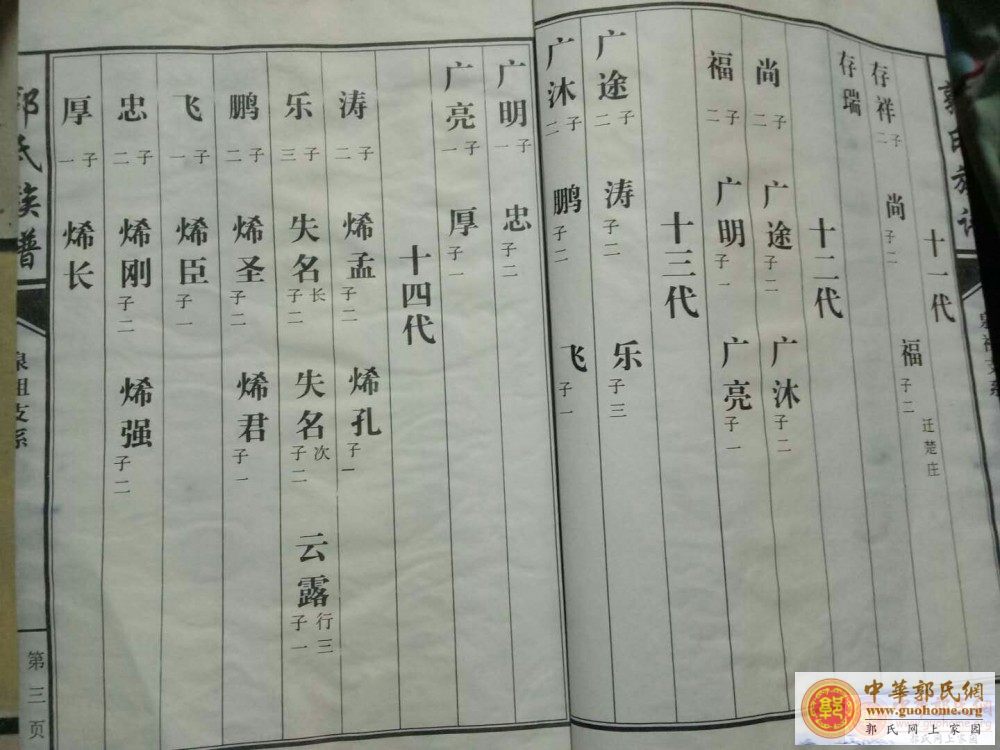 郭氏族谱
十一代
存祥 子二 尚 子二 福 子二 迁楚庄
存瑞
十二代
尚 子二 广途 子二 广沐 子二
福 子二 广明 子一 广亮 子一
十三代
广途 子二 涛 子二 乐 子三
广沐 子二 鹏 子二 飞 子一
广明 子一 忠 子二
广亮 子一 厚 子一
十四代
涛 子二 烯孟 子二 烯孔 子一
乐 子三 失名 长 子二 失名 次 子二 云露 行三 子一
鹏 子二 烯圣 子二 烯君 子一
飞 子一 烯臣 子一
忠 子二 烯刚 子二 烯强 子二
厚 子一 烯长
郭氏族谱
泉祖支系
第三页
中華郭氏網
www.guohome.org
郭氏网上家园